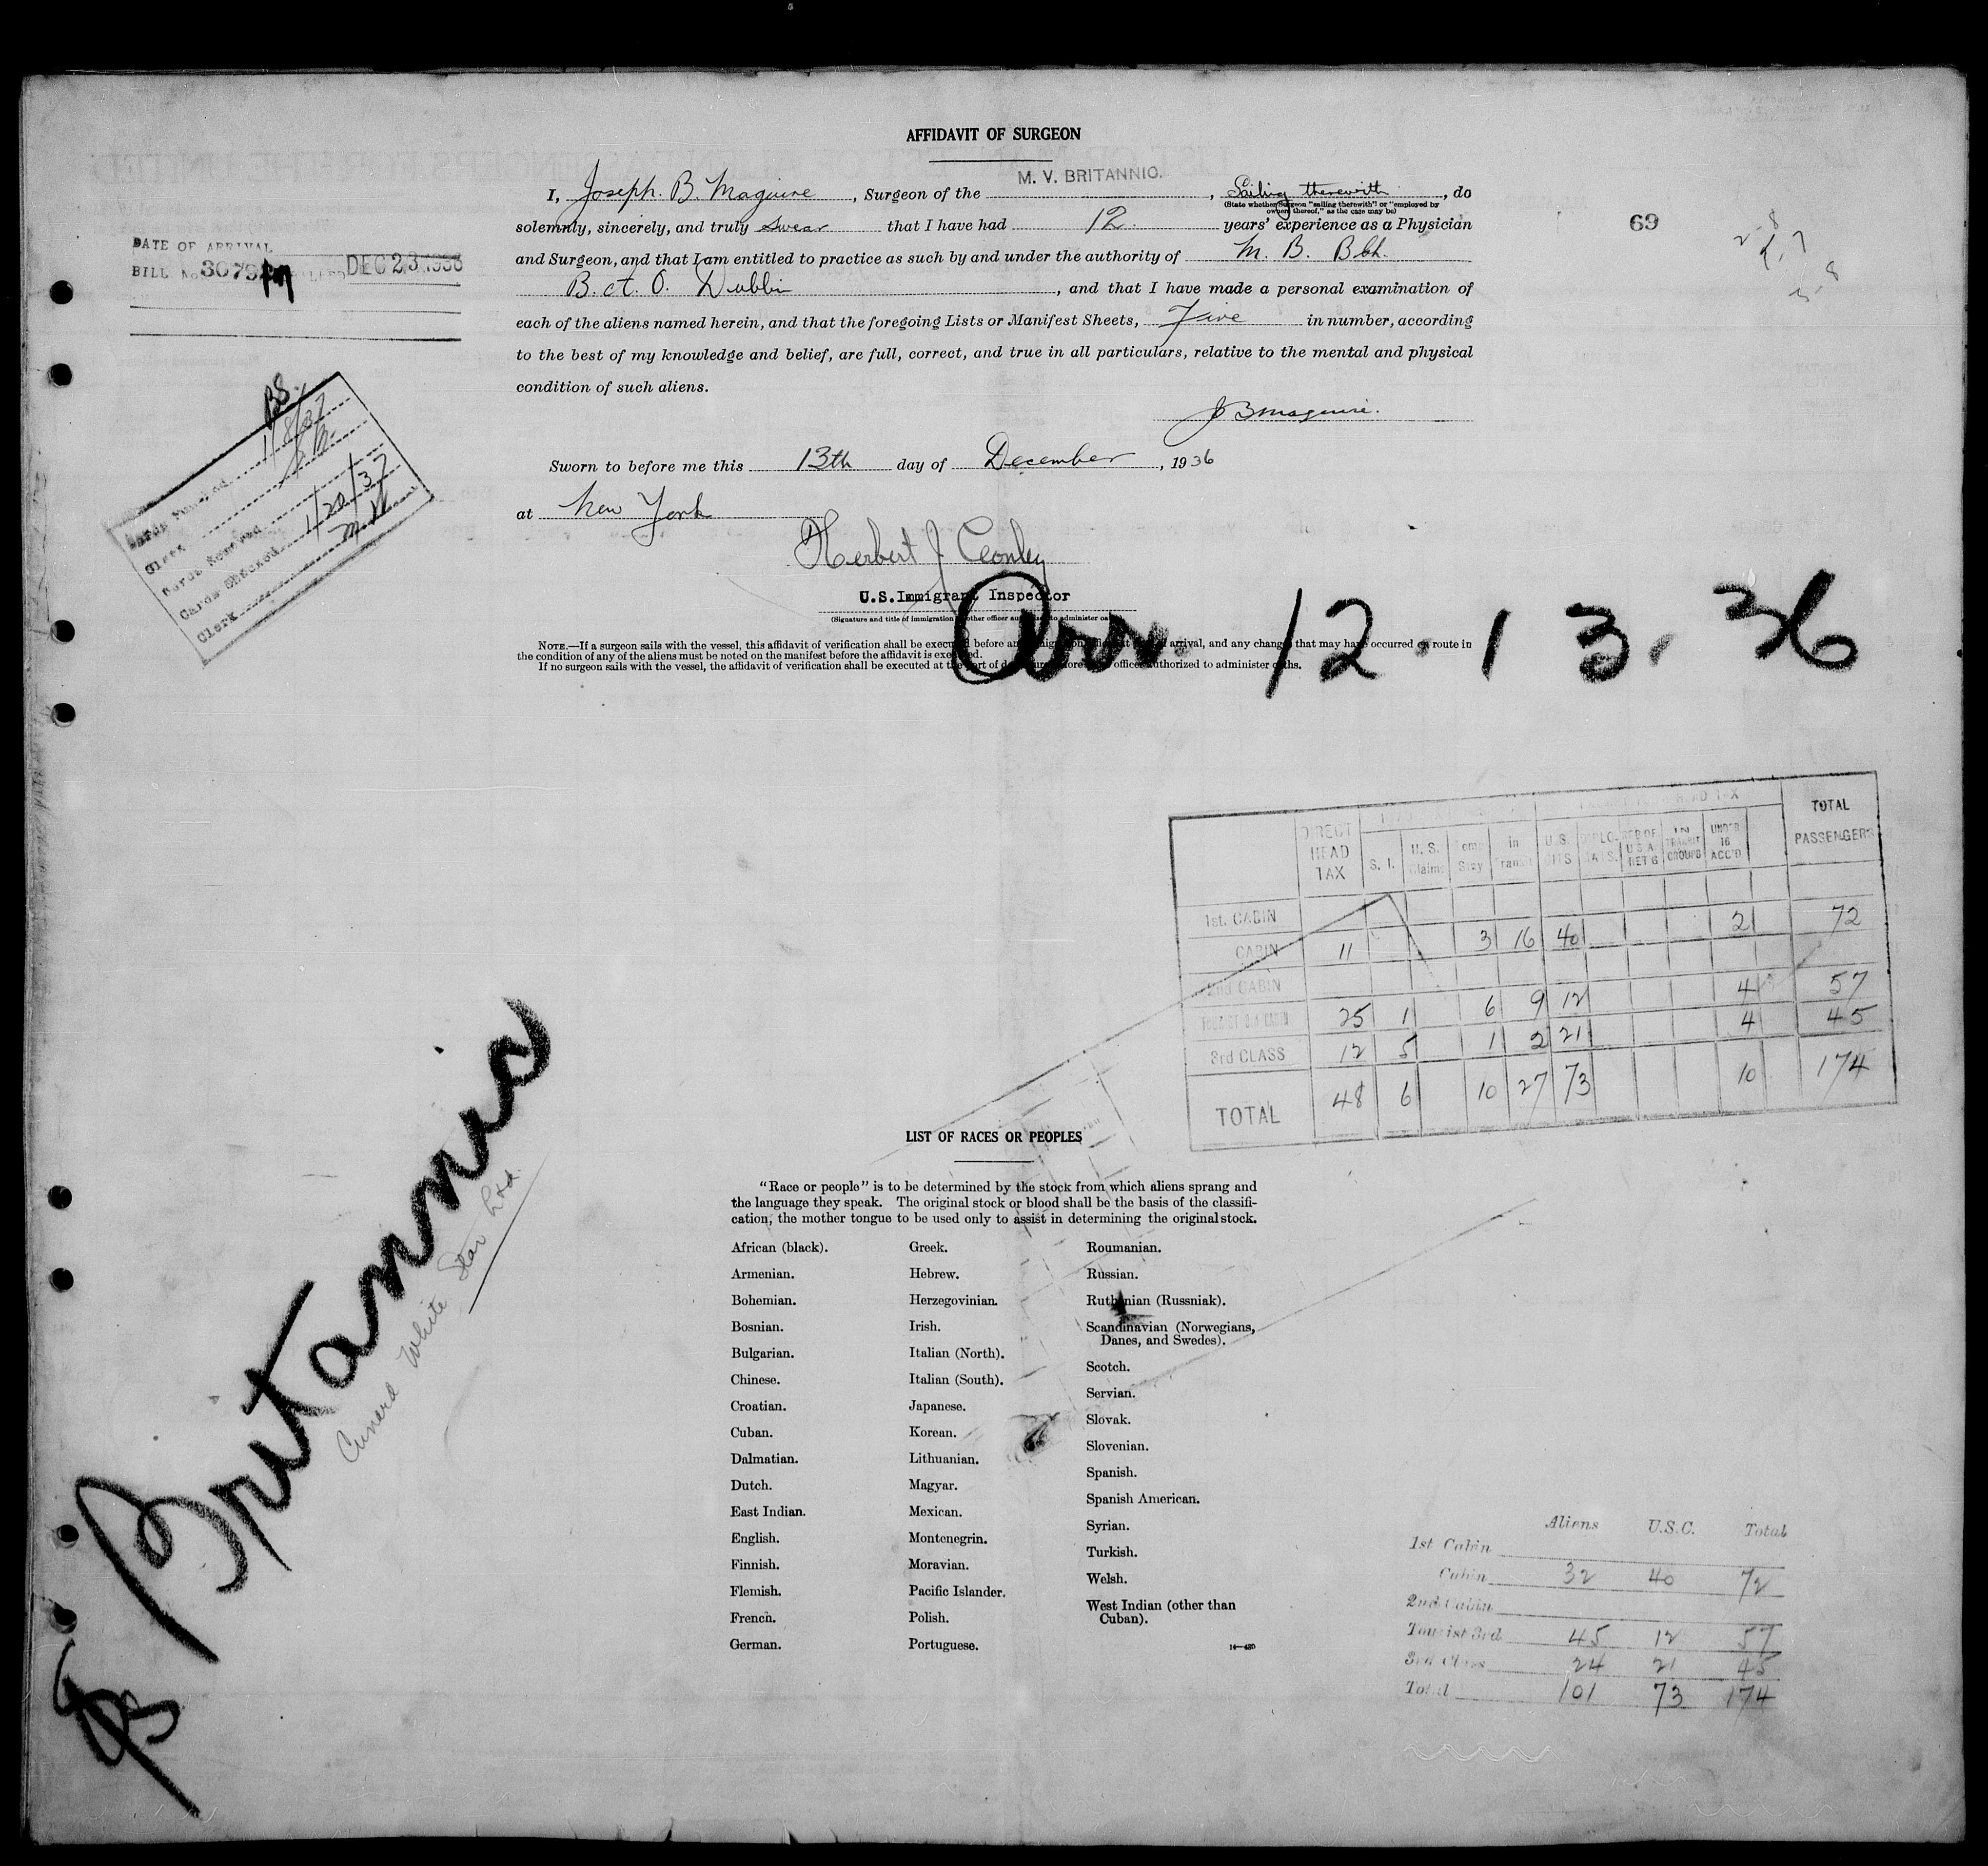 AFFIDAVIT OF SURGEON
I, Joseph. B. Maguire, Surgeon of the M. V. BRITANNIC., Sailing therewith, do
(State whether Surgeon "sailing therewith" or "employed by
owners thereof," as the case may be)
solemnly, sincerely, and truly swear that I have had 12. years' experience as a Physician
and Surgeon, and that I am entitled to practice as such by and under the authority of M. B. B.Ch.
B. A. O. Dublin, and that I have made a personal examination of
each of the aliens named herein, and that the foregoing Lists or Manifest Sheets, Five in number, according
to the best of my knowledge and belief, are full, correct, and true in all particulars, relative to the mental and physical
condition of such aliens.
J B Maguire.
Sworn to before me this 13th day of December, 1936
at New York
Herbert J
U.S. Immigrant Inspector
(Signature and title of immigration or other officer authorized to administer oaths)
NOTE.—If a surgeon sails with the vessel, this affidavit of verification shall be executed before an immigration officer at the port of arrival, and any changes that may have occurred en route in
the condition of any of the aliens must be noted on the manifest before the affidavit is executed.
If no surgeon sails with the vessel, the affidavit of verification shall be executed at the port of departure before any officer authorized to administer oaths.
69
DATE OF ARRIVAL
BILL No 3079 DEC 23 1936
BS.
1/8/37
Clerk
Cards Checked 1/20/37
Clerk
Arr. 12.13.36
DIRECT HEAD TAX S. I. U. S. Claims Temp Stay in Transit U.S. CITS DIPLOMATS. RES OF U.S.A. RET'G IN TRANSIT GROUPS UNDER 16 ACC'D TOTAL PASSENGERS
1st. CABIN
CABIN 11 3 16 40 2 72
2nd CABIN
TOURIST 3rd CABIN 25 1 6 9 12 4 57
3rd CLASS 12 5 1 2 21 4 45
TOTAL 48 6 10 27 73 10 174
Britannic
Cunard White Star Ltd.
LIST OF RACES OR PEOPLES
"Race or people" is to be determined by the stock from which aliens sprang and
the language they speak. The original stock or blood shall be the basis of the classifi-
cation, the mother tongue to be used only to assist in determining the original stock.
African (black).
Armenian.
Bohemian.
Bosnian.
Bulgarian.
Chinese.
Croatian.
Cuban.
Dalmatian.
Dutch.
East Indian.
English.
Finnish.
Flemish.
French.
German.
Greek.
Hebrew.
Herzegovinian.
Irish.
Italian (North).
Italian (South).
Japanese.
Korean.
Lithuanian.
Magyar.
Mexican.
Montenegrin.
Moravian.
Pacific Islander.
Polish.
Portuguese.
Roumanian.
Russian.
Ruthenian (Russniak).
Scandinavian (Norwegians,
Danes, and Swedes).
Scotch.
Servian.
Slovak.
Slovenian.
Spanish.
Spanish American.
Syrian.
Turkish.
Welsh.
West Indian (other than
Cuban).
Aliens U.S.C. Total
1st Cabin
Cabin 32 40 72
2nd Cabin
Tourist 3rd 45 12 57
3rd Class 24 21 45
Total 101 73 174